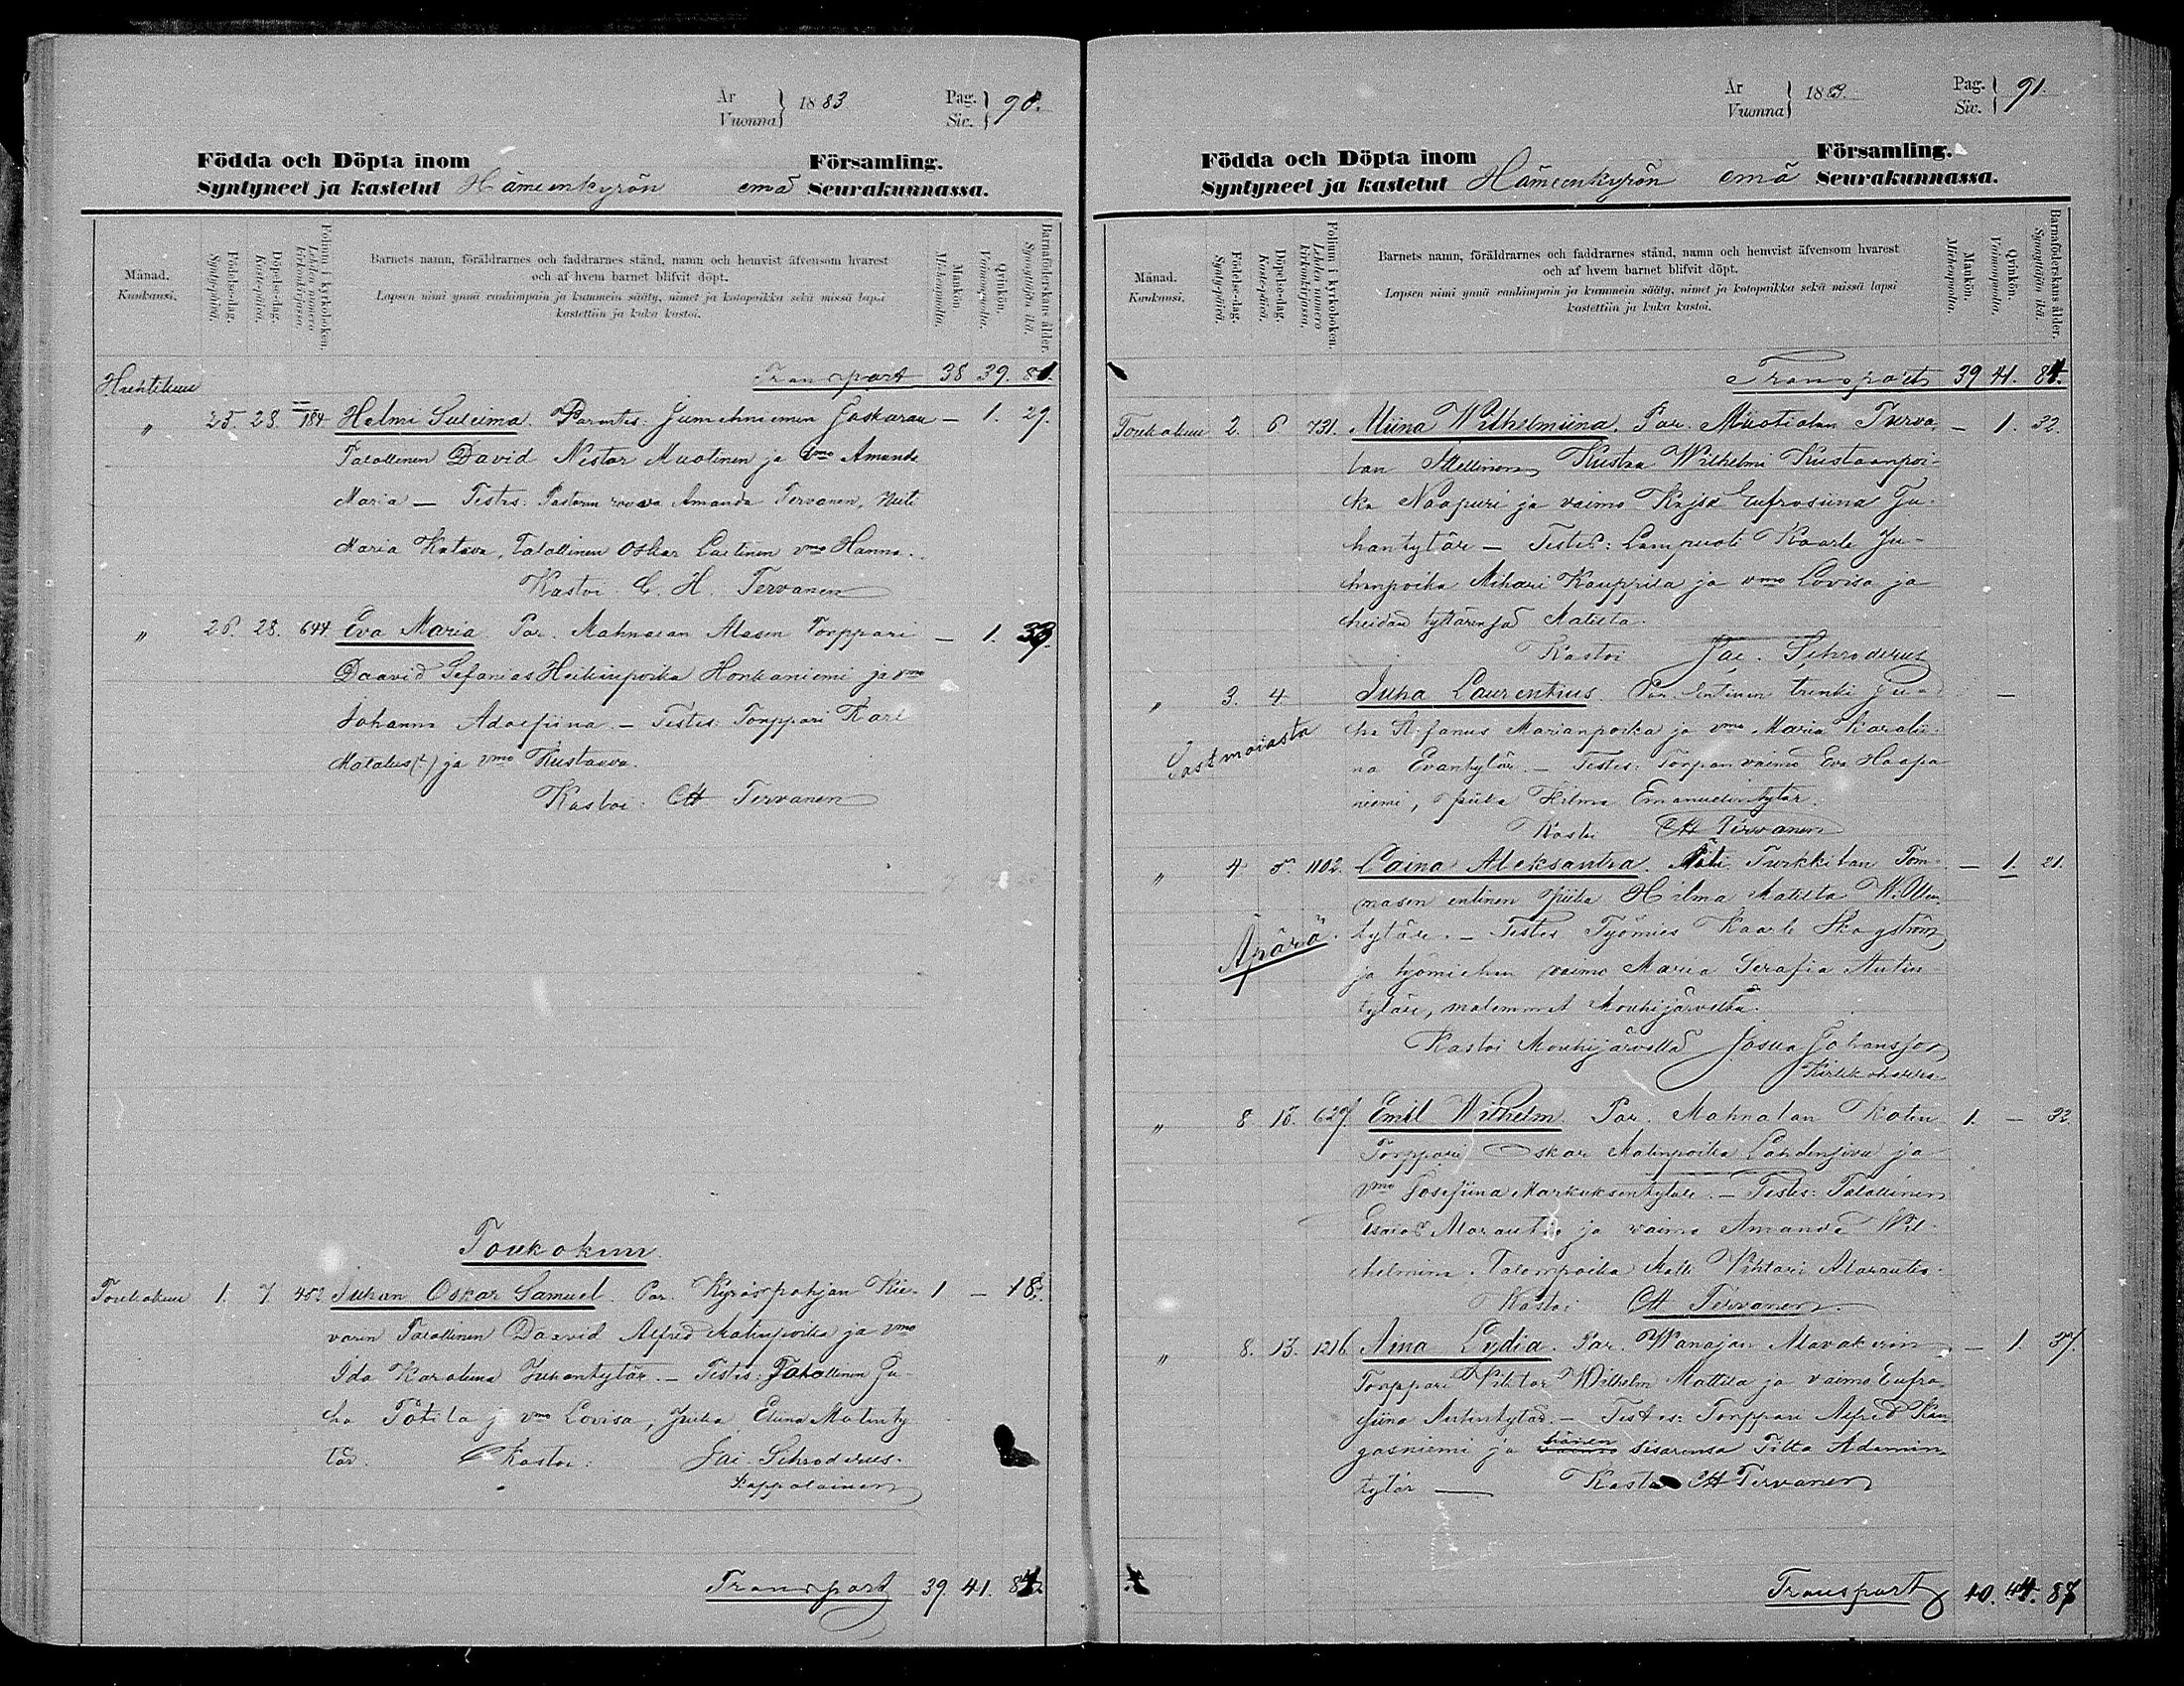 År
Vuonna } 1883
Pag.
Siv. } 90.
Födda och Döpta inom Församling.
Syntyneet ja kastetut Hämeenkyrön emä Seurakunnassa.
Månad.
Kuukausi.
Födelse-dag.
Syntypäivä.
Döpelse-dag.
Kastepäivä.
Folium i kyrkoboken.
Lehden numero kirkonkirjassa.
Barnets namn, föräldrarnes och faddrarnes stånd, namn och hemvist äfvensom hvarest
och af hvem barnet blifvit döpt.
Lapsen nimi ynnä vanhimpain ja kummein sääty, nimet ja kotopaikka sekä missä lapsi
kastettiin ja kuka kastoi.
Mankön.
Miehenpuolta.
Qvinkön.
Vaimonpuolta.
Barnaföderskans ålder.
Synnyttäjän ikä.
Transport 38 39. 81.
Huhtikuu
" 25. 28. 184 Helmi Suleima. Parentes: Jumehniemen Jaskaran — 1. 29.
Talollinen David Nestor Muotinen ja vmo Amanda
Maria — Testes: Pastorin rouva Amanda Tervanen, Neiti
Maria Katava, Talollinen Oskar Laitinen vmo Hanna.
Kastoi C. H. Tervanen
" 26. 28. 644 Eva Maria Par. Mahnalan Alasen Torppari — 1. 33.
Daavid Sefanias Heikinpoika Honkaniemi ja vmo
Johanna Adolfiina. — Testes: Torppari Karl
Matalus(?) ja vmo Kustaava.
Kastoi: CH Tervanen
Toukokuu.
Toukokuu 1. 7. 452 Juhan Oskar Samuel. Par. Kyröspohjan Kie- 1 — 18.
varin Talollinen Daavid Alfred Matinpoika ja vmo
Ida Karoliina Juhontytär. — Testes: Talollinen Ju-
ha Tötila ja vmo Lovisa, Piika Elina Matinty
tär. Kastoi: Jac. Schroderus.
Kappalainen
Transport 39. 41. 84.
År
Vuonna } 1883.
Pag.
Siv. } 91.
Födda och Döpta inom Församling.
Syntyneet ja kastetut Hämeenkyrön emä Seurakunnassa.
Månad.
Kuukausi.
Födelse-dag.
Syntypäivä.
Döpelse-dag.
Kastepäivä.
Folium i kyrkoboken.
Lehden numero kirkonkirjassa.
Barnets namn, föräldrarnes och faddrarnes stånd, namn och hemvist äfvensom hvarest
och af hvem barnet blifvit döpt.
Lapsen nimi ynnä vanhimpain ja kummein sääty, nimet ja kotopaikka sekä missä lapsi
kastettiin ja kuka kastoi.
Mankön.
Miehenpuolta.
Qvinkön.
Vaimonpuolta.
Barnaföderskans ålder.
Synnyttäjän ikä.
Transport 39 41. 84.
Toukokuu 2. 6 731. Miina Wilhelmiina. Par. Turva- — 1. 32.
lan Itellinen Kustaa Wilhelmi Kustaanpoi-
ka Naapuri ja vaimo Kajsa Eufrosiina Ju-
hantytär — Testes: Lampuoti Kaarle Ju-
hanpoika Mihari Kauppila ja vmo Lovisa ja
heidän tyttärensä Matilta.
Kastoi Jac. Schroderus
" 3. 4. Juha Laurentius. Par. Entinen trenki Ju- —
ha Stefanus Marianpoika ja vmo Maria Karolii-
Sastmolasta
na Evantytär. — Testes: Torpan vaimo Eva Haapa
niemi, piika Hilma Emanuelintytär.
Kastoi CH Tervanen
" 4 5. 1102. Laina Aleksantra. Äiti. Turkkilan Tom- — 1. 21.
masen entinen piika Hilma Matilta Willen
Äpärä. tytär. — Testes Työmies Kaarle Skogström
ja työmiehen vaimo Maria Serafia Antin
tytär, molemmat Mouhijärveltä.
Kastoi Mouhijärvellä Josua Johansson
Kirkkoherra
" 8 15. 627. Emil Wilhelm Par. Mahnalan Kotin 1. — 32.
Torppari Oskar Matinpoika Lahdensivu ja
vmo Josefiina Markuksentytär. — Testes: Talollinen
Esaias Marautio ja vaimo Amanda Wil-
helmina. Talonpoika Matti Wihtori Marautio.
Kastoi CH Tervanen.
" 8. 13. 1216 Aina Lydia. Par. Wanajan Alavakerin — 1. 37.
Torppari Wihtor Wilhelm Mattila ja vaimo Eufro
siina Antintytär. — Testes: Torppari Alfred Kan
gasniemi ja hänen sisarensa Tilta Adamin
tytär — Kastoi CH Tervanen
Transport 40. 44. 87